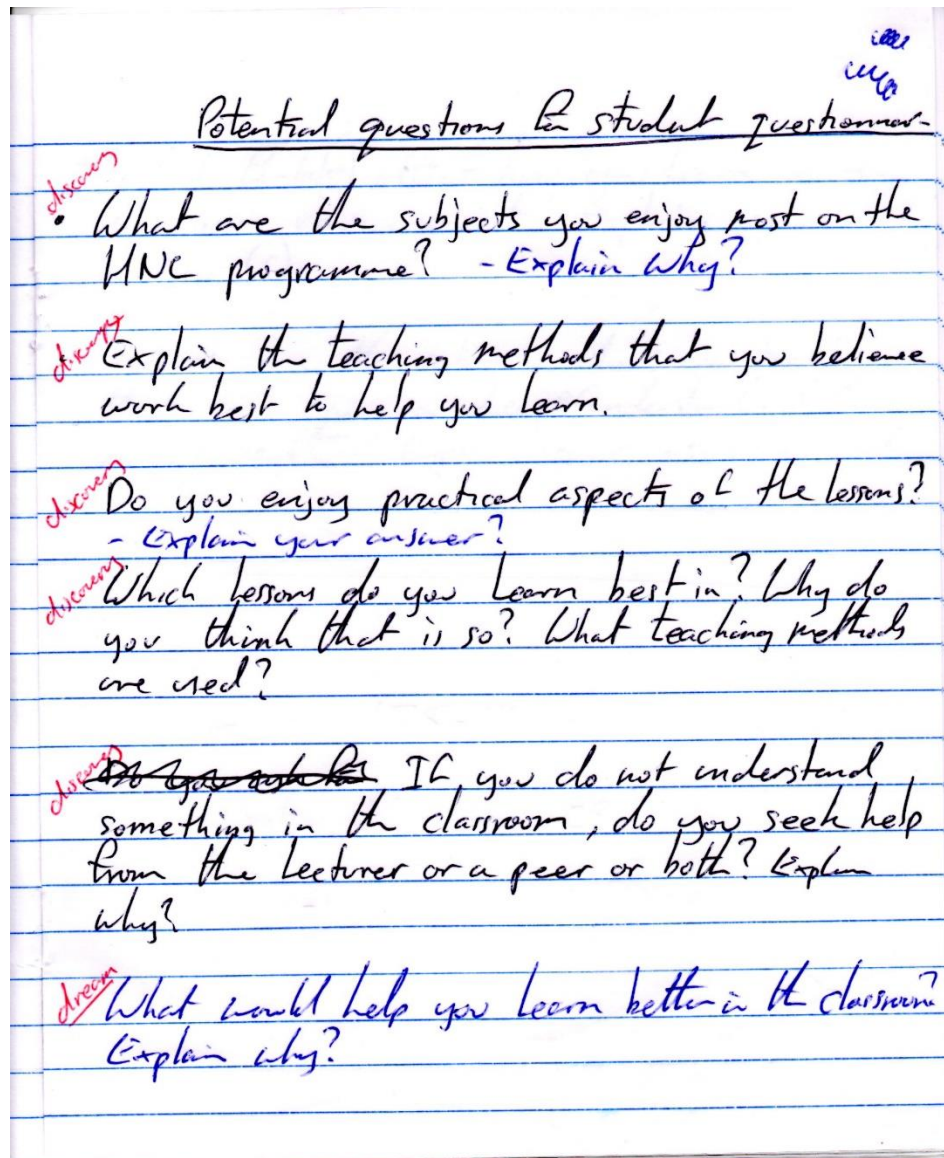 Potential questions for student questionnair
discovery
• What are the subjects you enjoy most on the
HNC programme? - Explain Why?
discovery
• Explain the teaching methods that you believe
work best to help you learn.
discovery
Do you enjoy practical aspects of the lessons?
- Explain your answer?
discovery
Which lessons do you learn best in? Why do
you think that is so? What teaching methods
are used?
discovery
If you do not understand
something in the classroom, do you seek help
from the lecturer or a peer or both? Explain
why?
dream
What would help you learn better in the classroom?
Explain why?